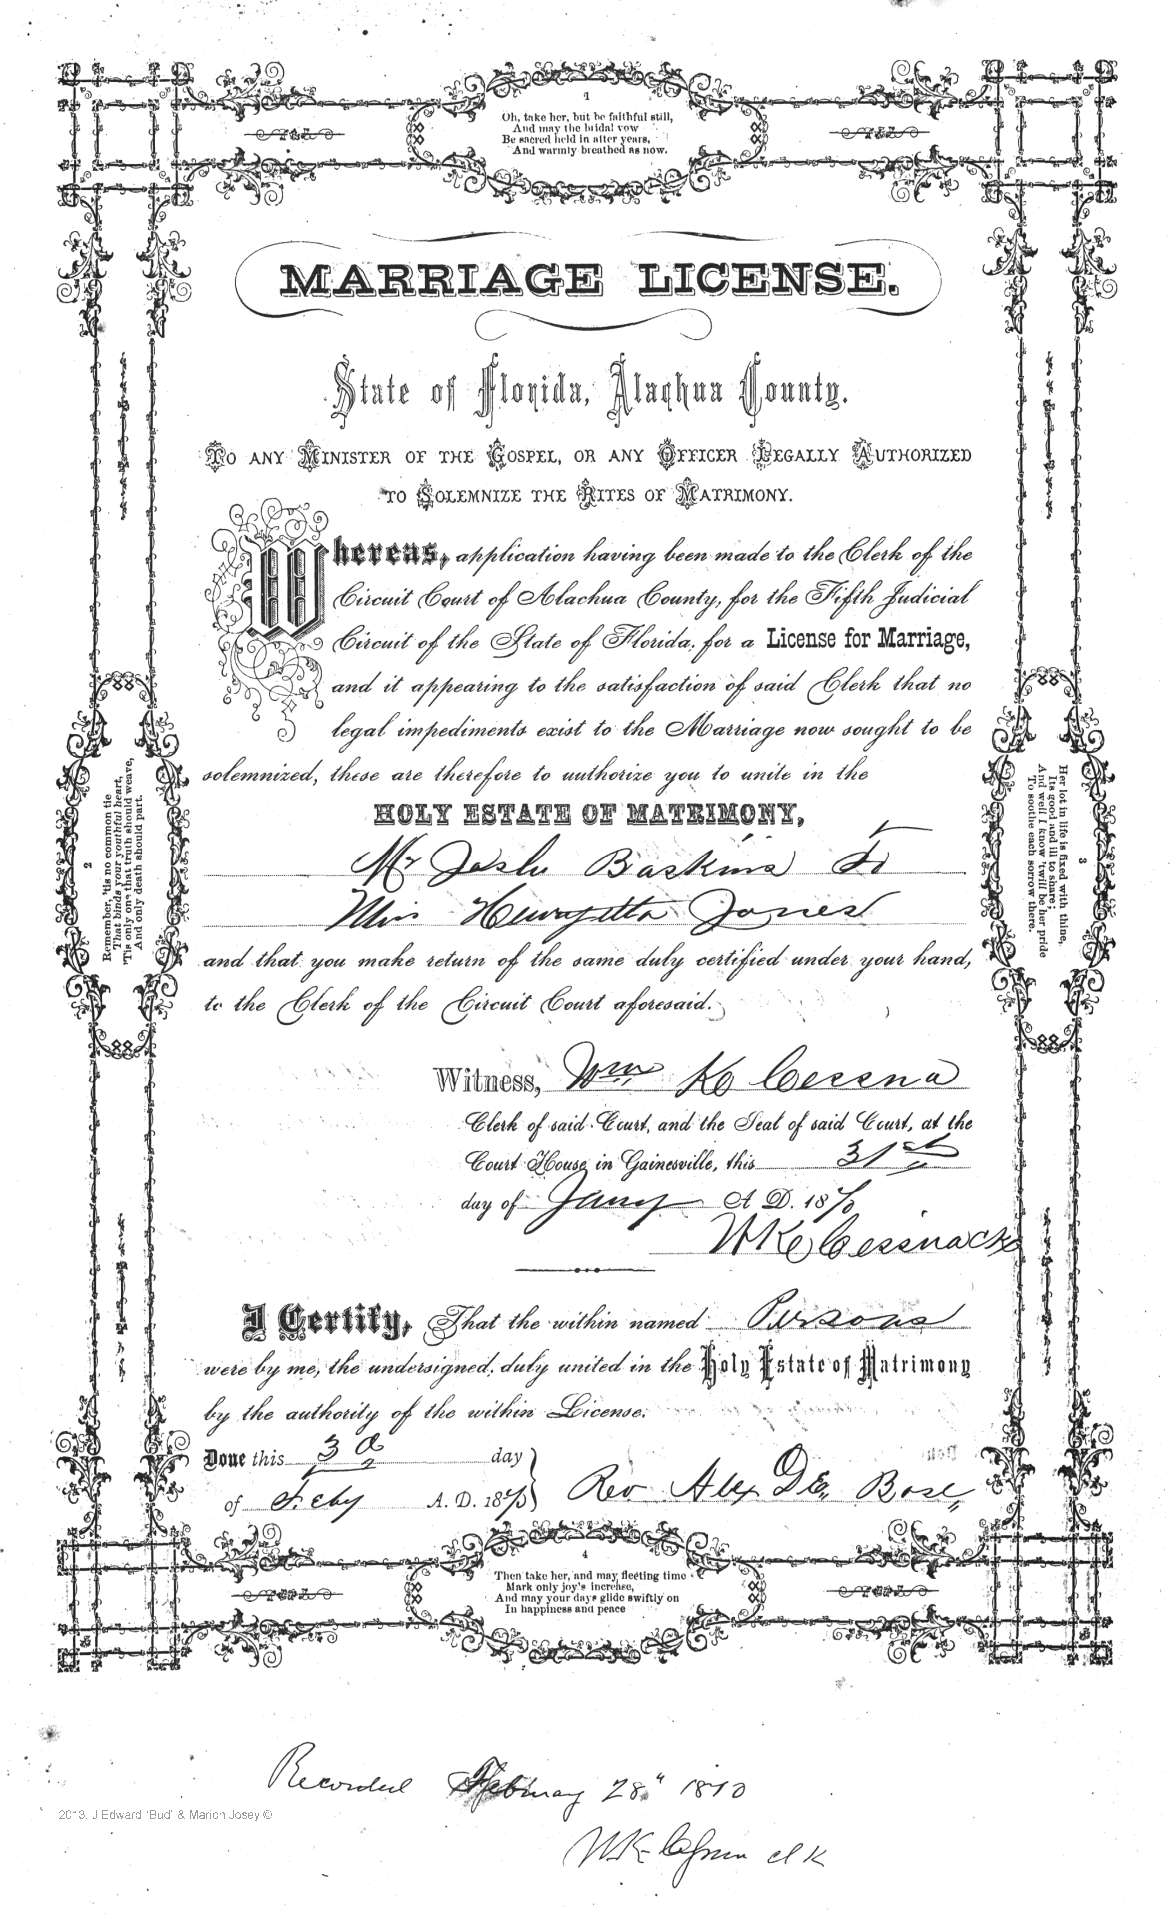 1
Oh, take her, but be faithful still,
And may the bridal vow
Be sacred held in after years,
And warmly breathed as now.
MARRIAGE LICENSE.
State of Florida, Alachua County.
TO ANY MINISTER OF THE GOSPEL, OR ANY OFFICER LEGALLY AUTHORIZED
TO SOLEMNIZE THE RITES OF MATRIMONY.
Whereas, application having been made to the Clerk of the
Circuit Court of Alachua County, for the Fifth Judicial
Circuit of the State of Florida, for a License for Marriage,
and it appearing to the satisfaction of said Clerk that no
legal impediments exist to the Marriage now sought to be
solemnized, these are therefore to authorize you to unite in the
HOLY ESTATE OF MATRIMONY,
Mr Joshu Baskins To
Miss Jones
and that you make return of the same duly certified under your hand,
to the Clerk of the Circuit Court aforesaid.
Witness, Wm K Cessna
Clerk of said Court, and the Seal of said Court, at the
Court House in Gainesville, this 31st
day of Jany A D. 1870
WK Cessna Clk
I Certify, That the within named Persons
were by me, the undersigned, duly united in the Holy Estate of Matrimony
by the authority of the within License.
Done this 3d day
of Feby A. D. 1870
Rev Alex De Bose
2
Remember, 'tis no common tie
That binds your youthful heart,
'Tis only one that truth should weave,
And only death should part.
3
Her lot in life is fixed with thine,
Its good and ill to share;
And well I know 'twill be her pride
To soothe each sorrow there.
4
Then take her, and may fleeting time
Mark only joy's increase,
And may your days glide swiftly on
In happiness and peace
Recorded February 28" 1870
2013. J Edward 'Bud' & Marion Josey ©
WK Cessna clk